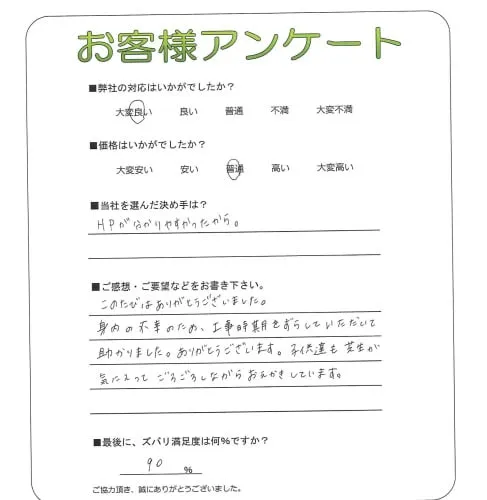 お客様アンケート
■弊社の対応はいかがでしたか？
大変良い 良い 普通 不満 大変不満
■価格はいかがでしたか？
大変安い 安い 普通 高い 大変高い
■当社を選んだ決め手は？
HPが分かりやすかったから。
■ご感想・ご要望などをお書き下さい。
このたびはありがとうございました。
身内の不幸のため、工事時期をずらしていただいて
助かりました。ありがとうございます。子供達も芝生が
気に入って ごろごろしながらおえかきしています。
■最後に、ズバリ満足度は何%ですか？
90 %
ご協力頂き、誠にありがとうございました。